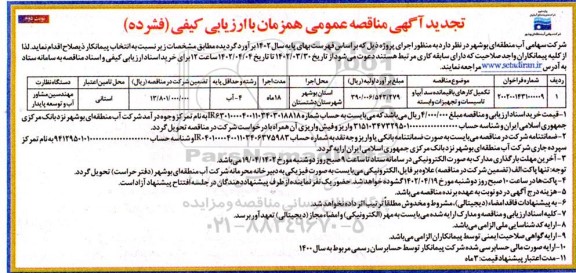 نوبت دوم
تجدید آگهی مناقصه عمومی همزمان با ارزیابی کیفی (فشرده)
شرکت سهامی آب منطقه‌ای بوشهر در نظر دارد به منظور اجرای پروژه ذیل که بر اساس فهرست بهای پایه سال ۱۴۰۲ برآورد گردیده مطابق مشخصات زیر نسبت به انتخاب پیمانکار ذیصلاح اقدام نماید. لذا
از کلیه پیمانکاران واجد صلاحیت که دارای سابقه کاری مرتبط هستند دعوت می‌شود از تاریخ ۱۴۰۲/۰۳/۳۰ تا تاریخ ۱۴۰۲/۰۴/۰۴ ساعت ۱۲ برای خرید اسناد ارزیابی کیفی و اسناد مناقصه به سامانه ستاد
به آدرس www.setadiran.ir مراجعه نمایند.
ردیف شماره فراخوان موضوع مناقصه مبلغ برآورد اولیه (ریال) محل اجرا مدت اجرا رشته و حداقل پایه تضمین شرکت در مناقصه (ریال) محل تامین اعتبار دستگاه نظارت
۱ ۲۰۰۲۰۰۱۴۳۱۰۰۰۰۰۹ تکمیل کارهای باقیمانده سد آبپا و تاسیسات و تجهیزات وابسته استان بوشهر شهرستان دشتستان ۱۸ ماه ۴ - آب استانی مهندسین مشاور آب و توسعه پایدار
۱- قیمت خرید اسناد ارزیابی و مناقصه مبلغ ۴/۰۰۰/۰۰۰ ریال می‌باشد که می‌بایست به حساب شماره
به نام تمرکز وجوه درآمد شرکت آب منطقه‌ای بوشهر نزد بانک مرکزی
جمهوری اسلامی ایران و شناسه حساب واریز و فیش واریزی آن همراه با درخواست شرکت در مناقصه تحویل گردد.
۲- ضمانتنامه شرکت در مناقصه می‌بایست به صورت ضمانتنامه بانکی یا واریز وجه نقد به شماره حساب به نام تمرکز
سپرده جاری شرکت آب منطقه‌ای بوشهر نزد بانک مرکزی جمهوری اسلامی ایران ارایه گردد.
۳- آخرین مهلت بارگذاری مدارک به صورت الکترونیکی در سامانه ستاد تا ساعت ۹ صبح روز دوشنبه مورخ ۱۴۰۲/۰۴/۱۹ می‌باشد.
توجه: تنها پاکت الف (تضمین شرکت در مناقصه) علاوه بر فایل الکترونیکی، می‌بایست به صورت فیزیکی به دبیرخانه محرمانه شرکت آب منطقه‌ای بوشهر (دفتر حراست) تحویل گردد.
۴- پاکت‌ها در ساعت ۱۰ صبح روز دوشنبه مورخ ۱۴۰۲/۰۴/۱۹ گشوده خواهد شد. حضور یک نفر نماینده از طرف پیشنهاد دهندگان در جلسه افتتاح پیشنهاد آزاد است.
۵- هزینه درج آگهی در دو نوبت به عهده برنده مناقصه می‌باشد.
۶- به پیشنهادات فاقد امضاء (دیجیتالی)، مشروط و مخدوش مطلقاً ترتیب اثر داده نخواهد شد.
۷- کلیه اسناد ارزیابی و مناقصه و مدارک ارایه شده می‌بایست به مهر (الکترونیکی) و امضاء مجاز (دیجیتالی) تعهدآور برسد.
۸- ارایه کد شناسایی ملی الزامی می‌باشد.
۹- ارایه گواهی صلاحیت ایمنی توسط پیمانکاران الزامی می‌باشد.
۱۰- ارایه صورت مالی حسابرسی شده شرکت پیمانکار توسط حسابرسان رسمی مربوط به سال ۱۴۰۰
۱۱- مدت اعتبار پیشنهاد قیمت: ۳ ماه
۰۲۱-۸۸۳۴۹۶۷۰-۵